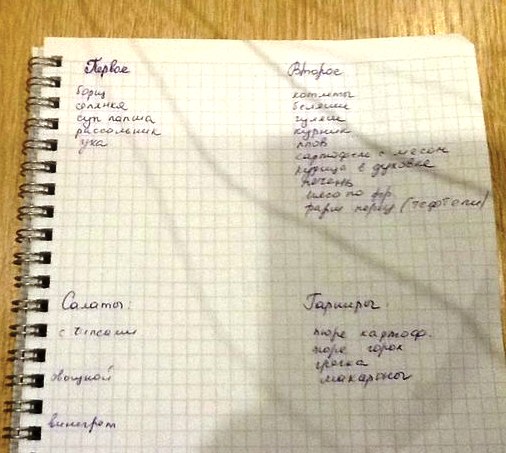 Первое
борщ
солянка
суп лапша
рассольник
уха
Второе
котлеты
беляши
гуляш
курник
плов
картофель с мясом
курица в духовке
печень
мясо по фр
фарш перец (тефтели)
Салаты:
с чипсами
овощной
винегрет
Гарниры:
пюре картоф.
пюре горох
гречка
макароны